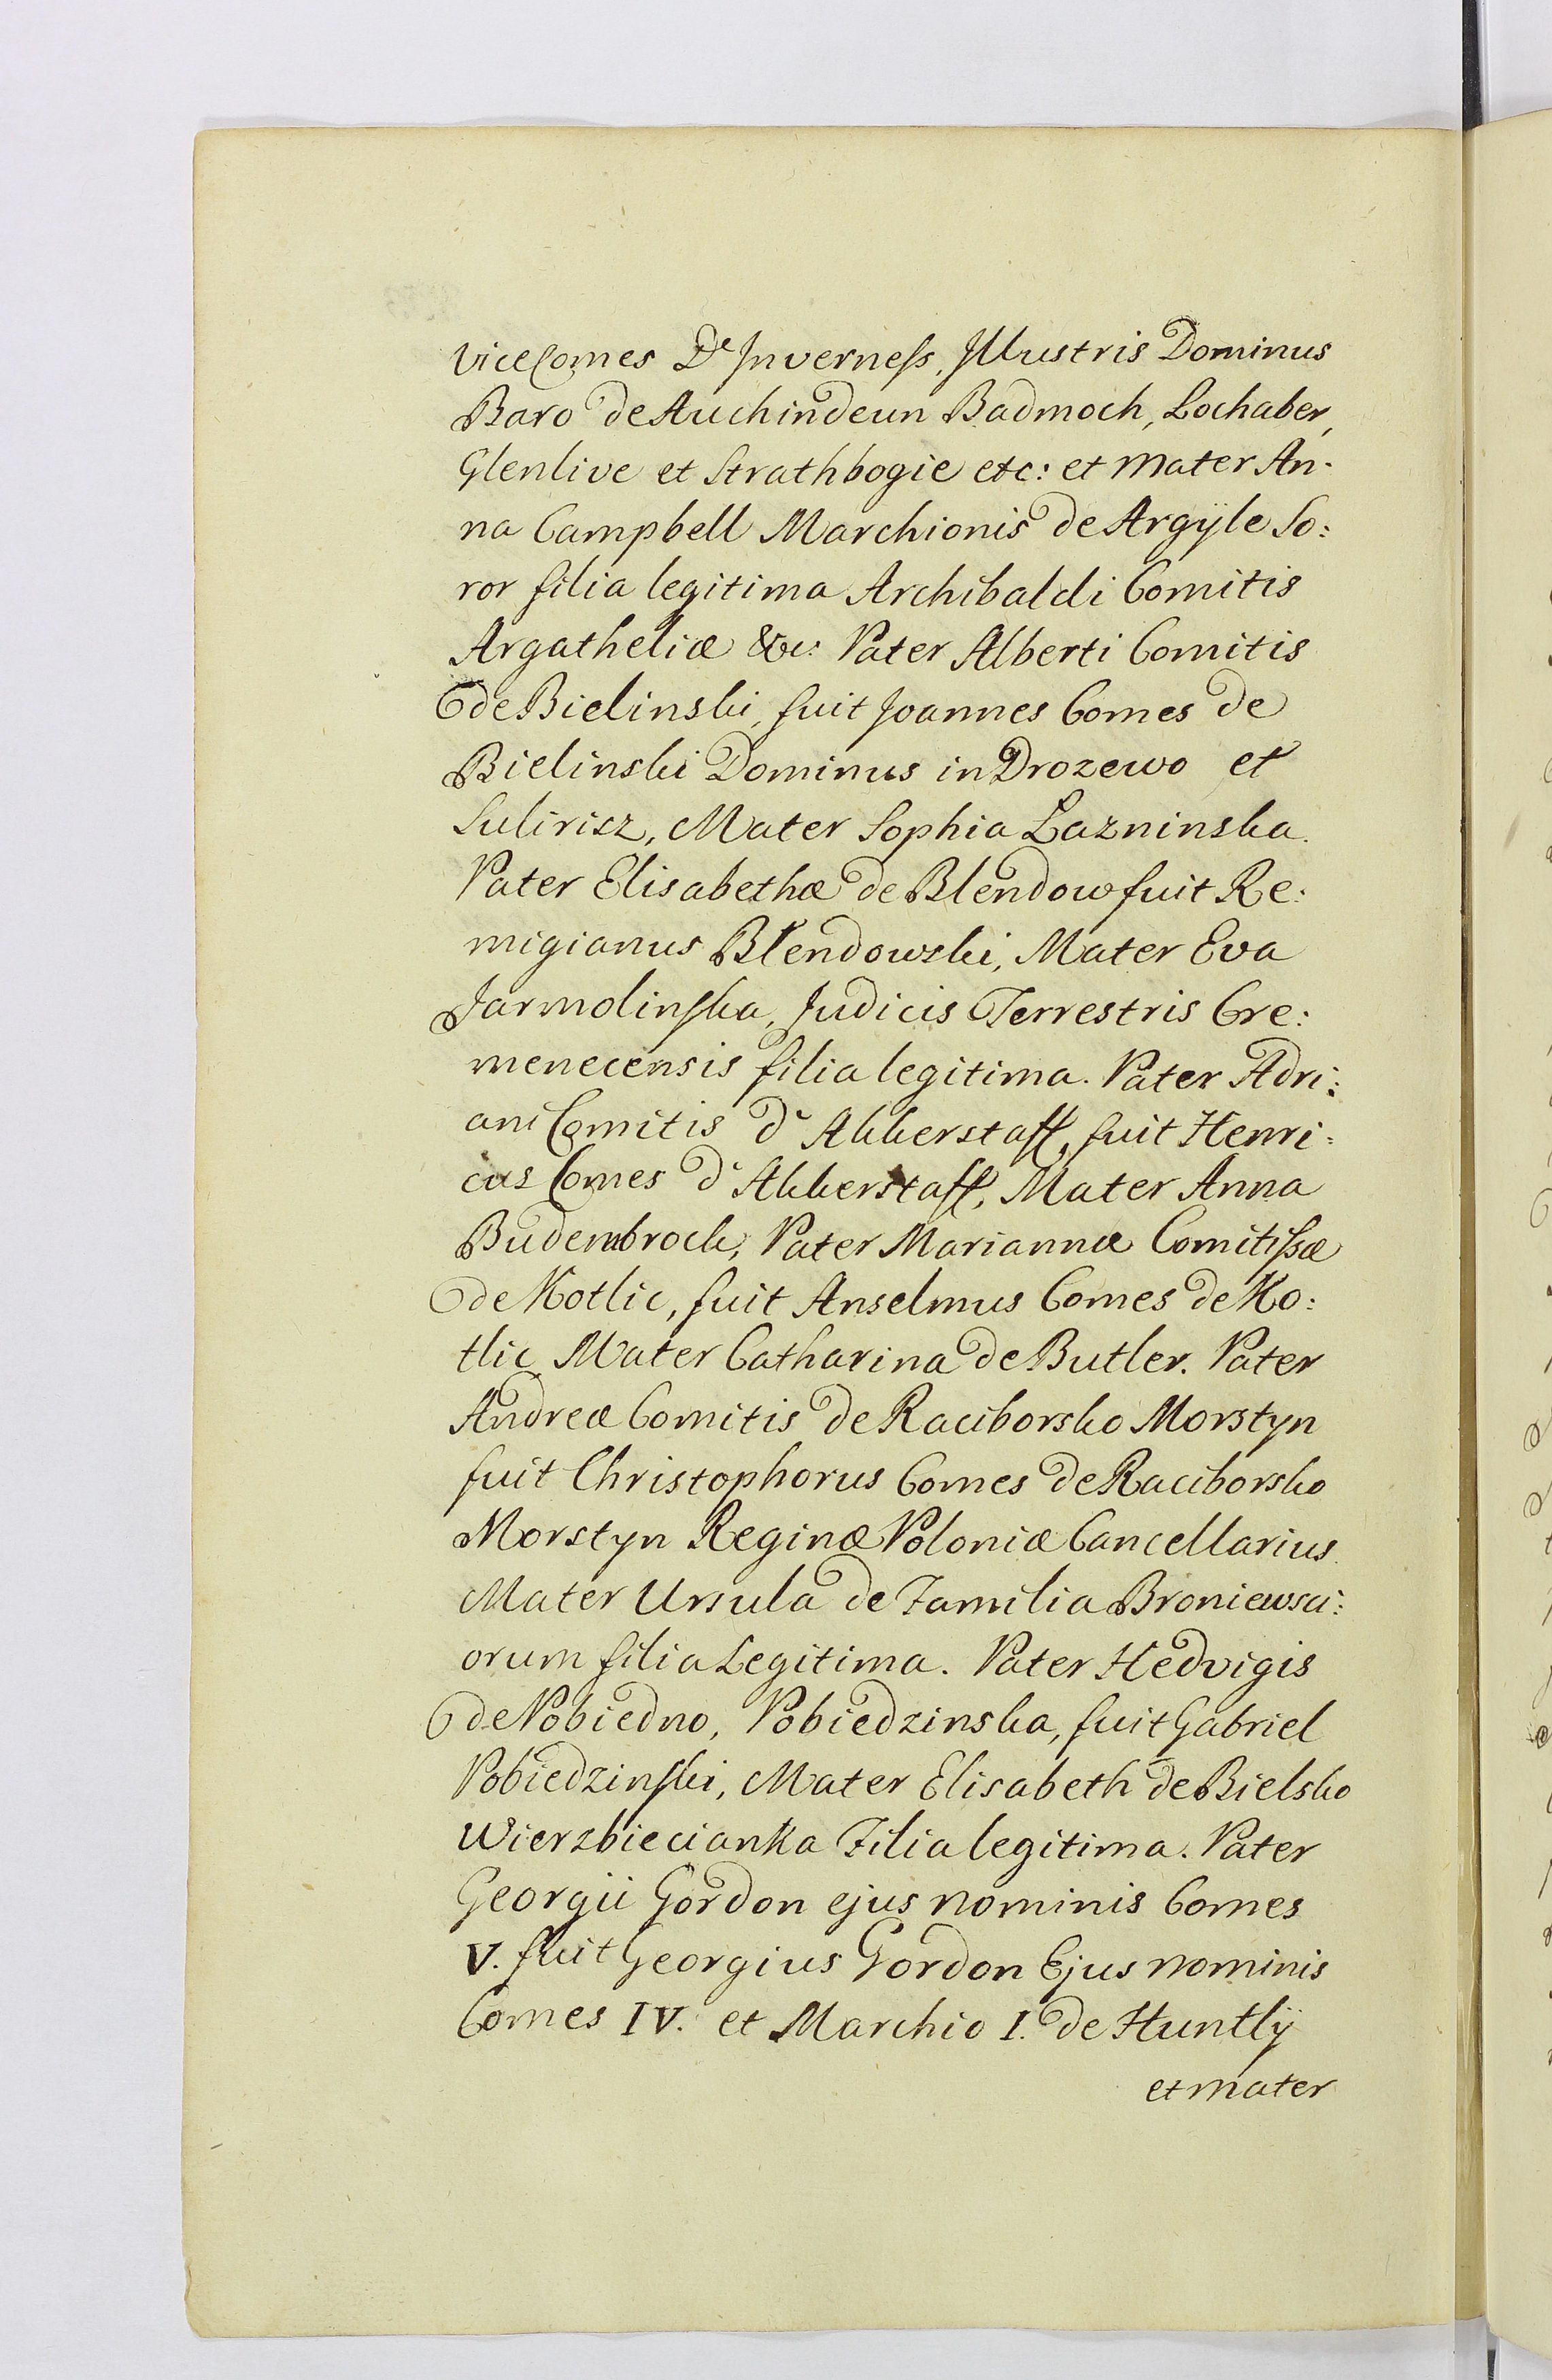 ViceComes De Inverness, Illustris Dominus
Baro de Auchindeun Badmoch, Lochaber,
Glenlive et Strathbogie etc: et Mater An-
na Campbell Marchionis de Argÿle So:
ror filia legitima Archibaldi Comitis
Argatheliæ &c: Pater Alberti Comitis
de Bielinski, fuit Joannes Comes de
Bielinski Dominus in Drozewo et
Sulirisz, Mater Sophia Lazninska.
Pater Elisabethæ de Blendow fuit Re:
migianus Blendowski, Mater Eva
Jarmolinska, Judicis Terrestris Cre:
menecensis filia legitima. Pater Adri:
ani Comitis d' Akkerstaff, fuit Henri:
cus Comes d' Akkerstaff, Mater Anna
Budembrock, Pater Mariannæ Comitissæ
de Kotlic, fuit Anselmus Comes de Ko:
tlic Mater Catharina de Butler. Pater
Andreæ Comitis de Raciborsko Morstyn
fuit Christophorus Comes de Raciborsko
Morstyn Reginæ Poloniæ Cancellarius.
Mater Ursula de Familia Broniewsci:
orum filia Legitima. Pater Hedvigis
de Pobiedno, Pobiedzinska, fuit Gabriel
Pobiedzinski, Mater Elisabeth de Bielsko
Wierzbiecianka Filia legitima. Pater
Georgii Gordon ejus nominis Comes
V. fuit Georgius Gordon Ejus nominis
Comes IV. et Marchio I. de Huntlÿ
et mater